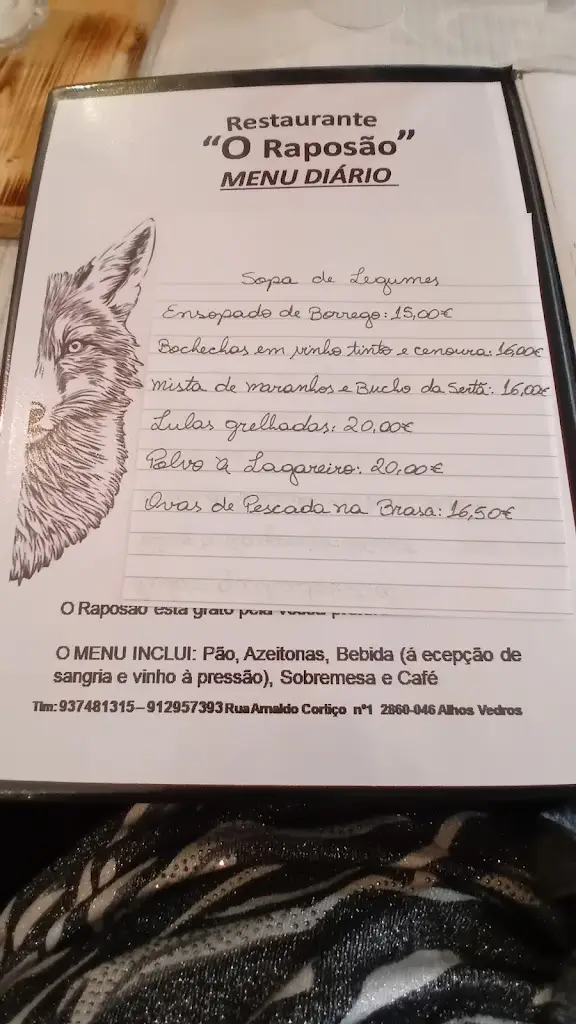 Restaurante
“O Raposão”
MENU DIÁRIO
Sopa de Legumes
Ensopado de Borrego: 15,00€
Bochechas em vinho tinto e cenoura: 16,00€
mista de maranhos e Bucho da Sertã: 16,00€
Lulas grelhadas: 20,00€
Polvo à Lagareiro: 20,00€
Ovas de Pescada na Brasa: 16,50€
O Raposão está grato pela vossa
O MENU INCLUI: Pão, Azeitonas, Bebida (á ecepção de
sangria e vinho à pressão), Sobremesa e Café
Tlm: 937481315–912957393 Rua Arnaldo Cortiço nº1 2860-046 Alhos Vedros